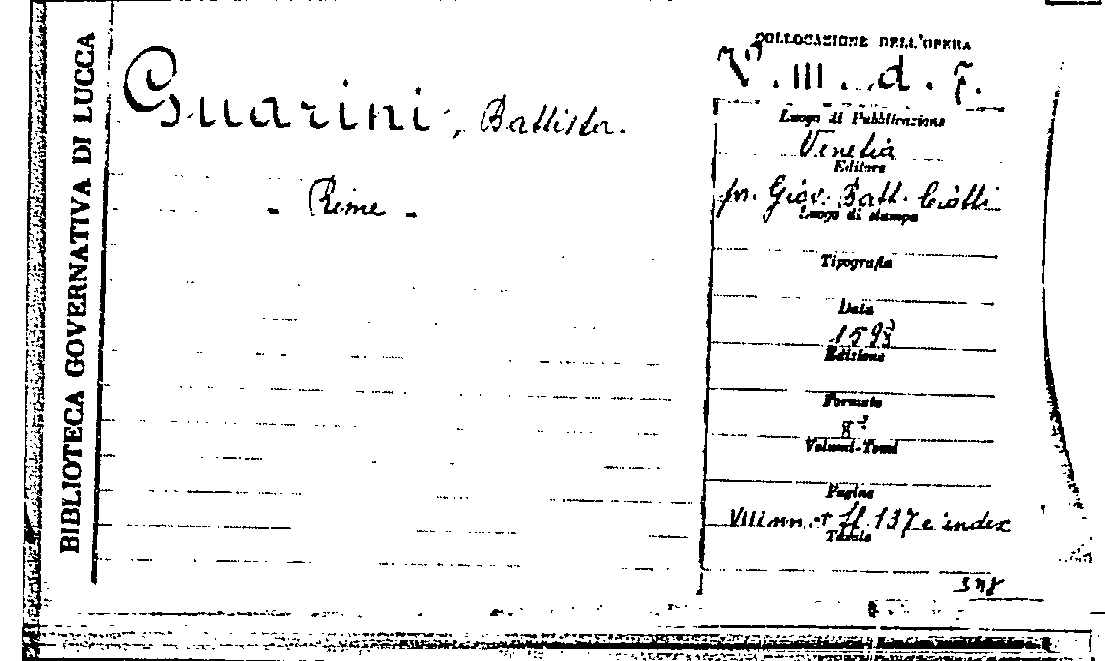 BIBLIOTECA GOVERNATIVA DI LUCCA
Guarini, Battista.
- Rime -
COLLOCAZIONE DELL'OPERA
V. III. d. 7.
Luogo di Pubblicazione
Venetia
Editore
pr. Giov. Batt. Ciotti
Luogo di stampa
Tipografia
Data
1598
Edizione
Formato
8º
Volumi-Tomi
Pagine
VIII nn. + ff. 137 e index
Tavole